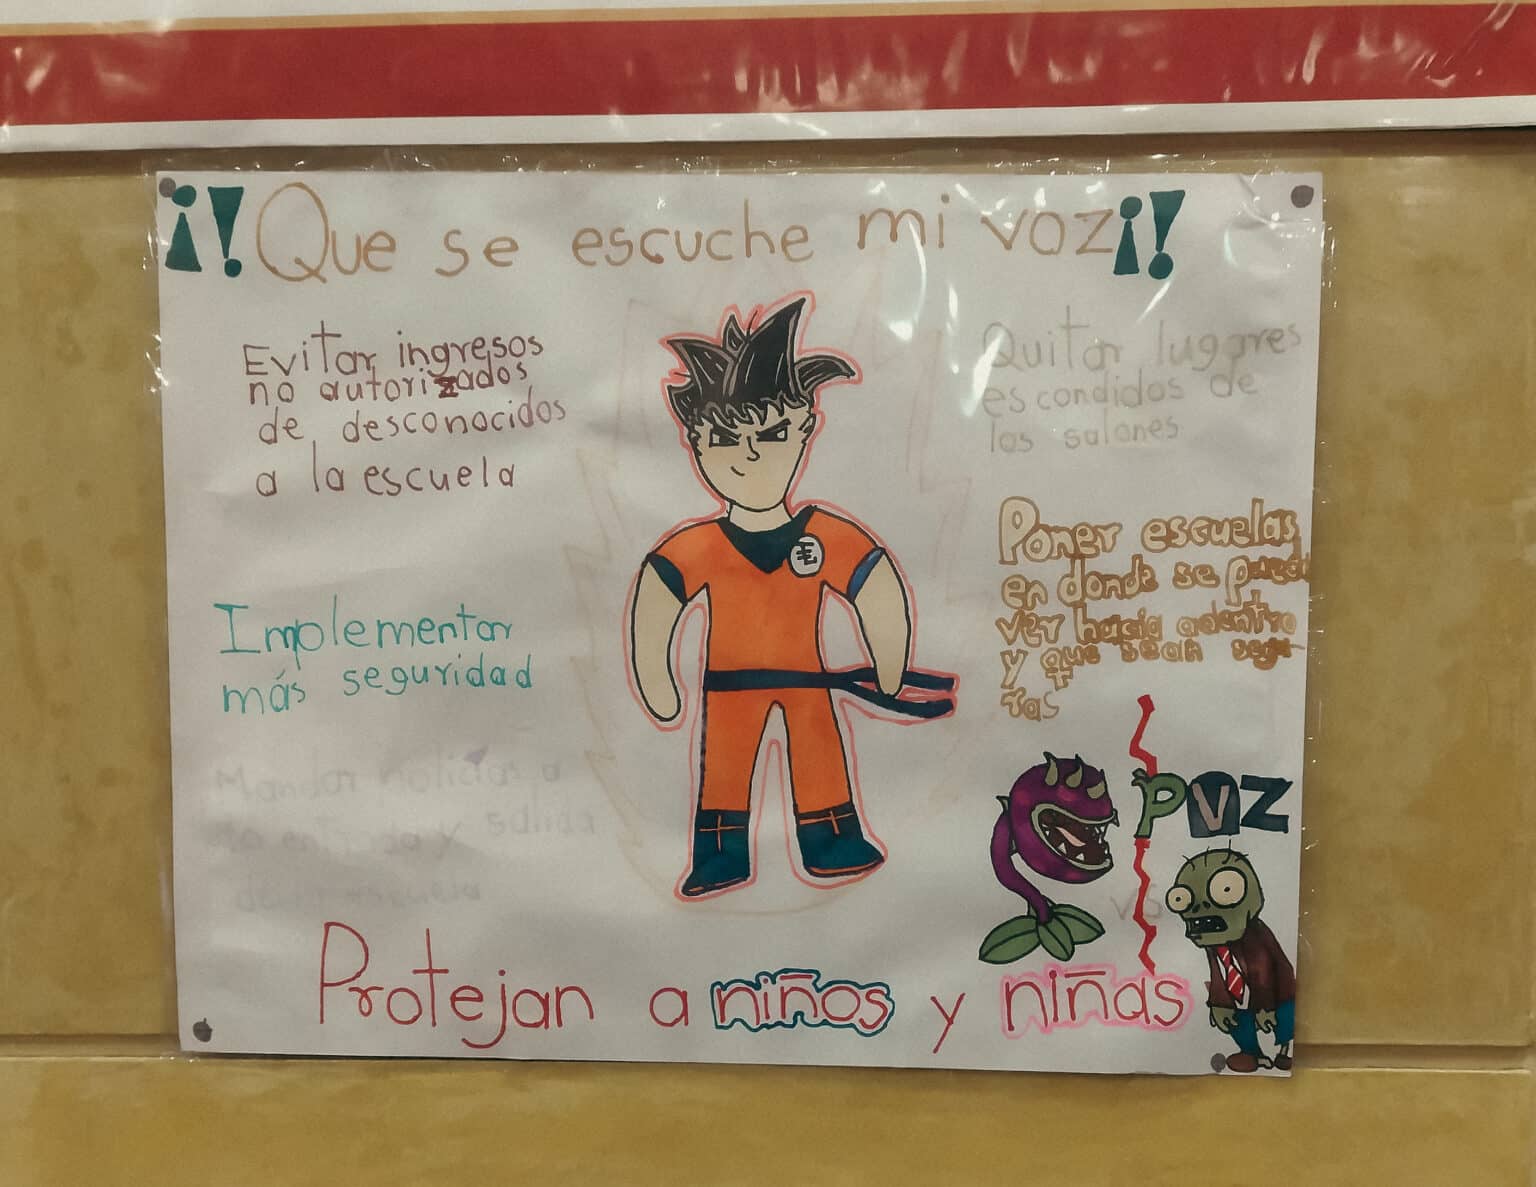 ¡!Que se escuche mi voz¡!
Evitar ingresos
no autorizados
de desconocidos
a la escuela
Implementar
más seguridad
Mandar policias a
la entrada y salida
de la escuela
Quitar lugares
escondidos de
los salones
Poner escuelas
en donde se pueda
ver hacia adentro
y que sean segu-
ras
PVZ
VS
Protejan a niños y niñas